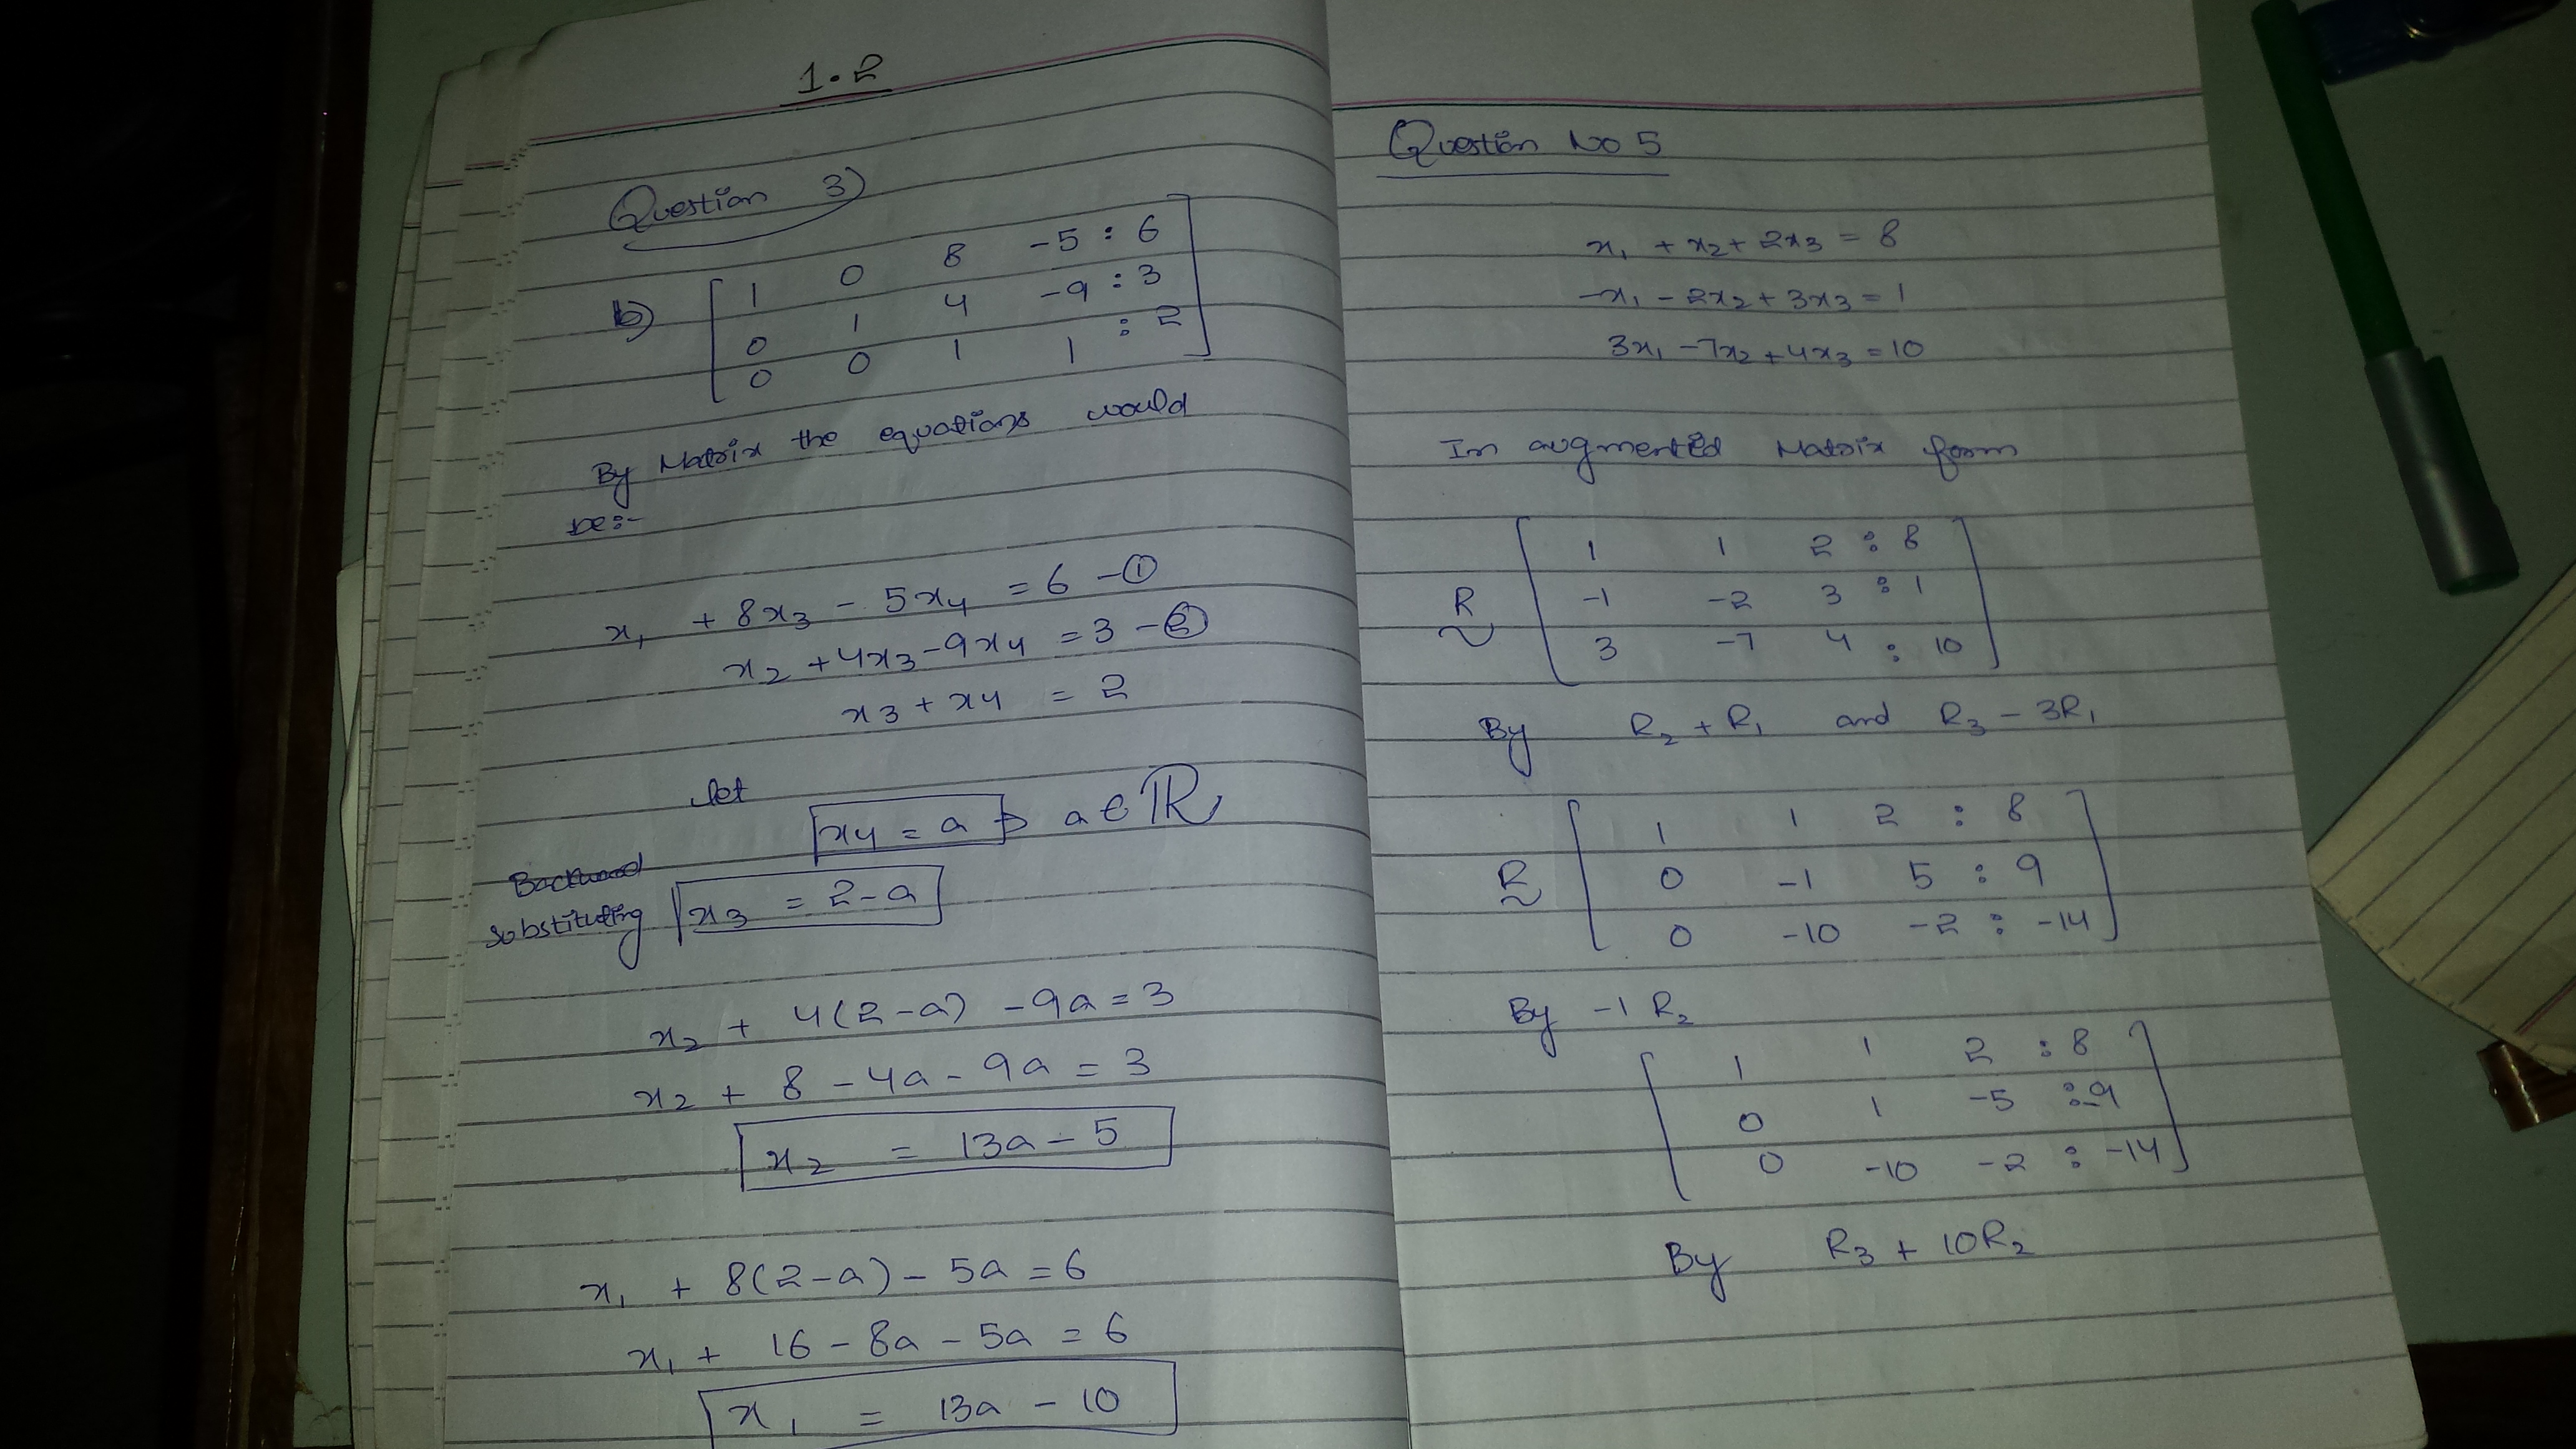 1.2
Question 3)
b) [ 1 0 8 -5 : 6
0 1 4 -9 : 3
0 0 1 1 : 2 ]
By Matrix the equations would
be:-
x₁ + 8x₃ - 5x₄ = 6 -①
x₂ + 4x₃ - 9x₄ = 3 -②
x₃ + x₄ = 2
let
x₄ = a a ∈ ℝ
substituting x₃ = 2-a
x₂ + 4(2-a) - 9a = 3
x₂ + 8 - 4a - 9a = 3
x₂ = 13a - 5
x₁ + 8(2-a) - 5a = 6
x₁ + 16 - 8a - 5a = 6
x₁ = 13a - 10
Question No 5
x₁ + x₂ + 2x₃ = 8
-x₁ - 2x₂ + 3x₃ = 1
3x₁ - 7x₂ + 4x₃ = 10
In augmented Matrix form
[ 1 1 2 : 8
R ~ -1 -2 3 : 1
3 -7 4 : 10 ]
By R₂ + R₁ and R₃ - 3R₁
[ 1 1 2 : 8
R ~ 0 -1 5 : 9
0 -10 -2 : -14 ]
By -1 R₂
[ 1 1 2 : 8
0 1 -5 : -9
0 -10 -2 : -14 ]
By R₃ + 10R₂